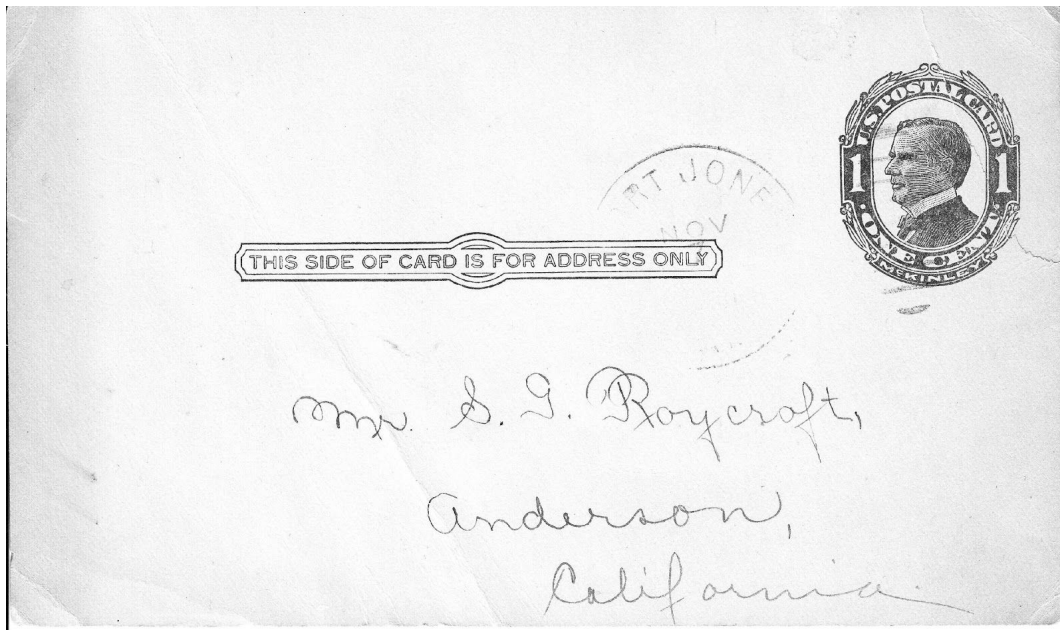 U.S. POSTAL CARD
1 1
ONE CENT
McKINLEY
RT JONE
NOV
THIS SIDE OF CARD IS FOR ADDRESS ONLY
Mr. S. G. Roycroft,
Anderson,
California.